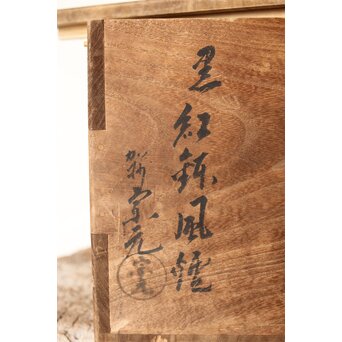 黒紅鉢風爐
加州
宗元
宗元